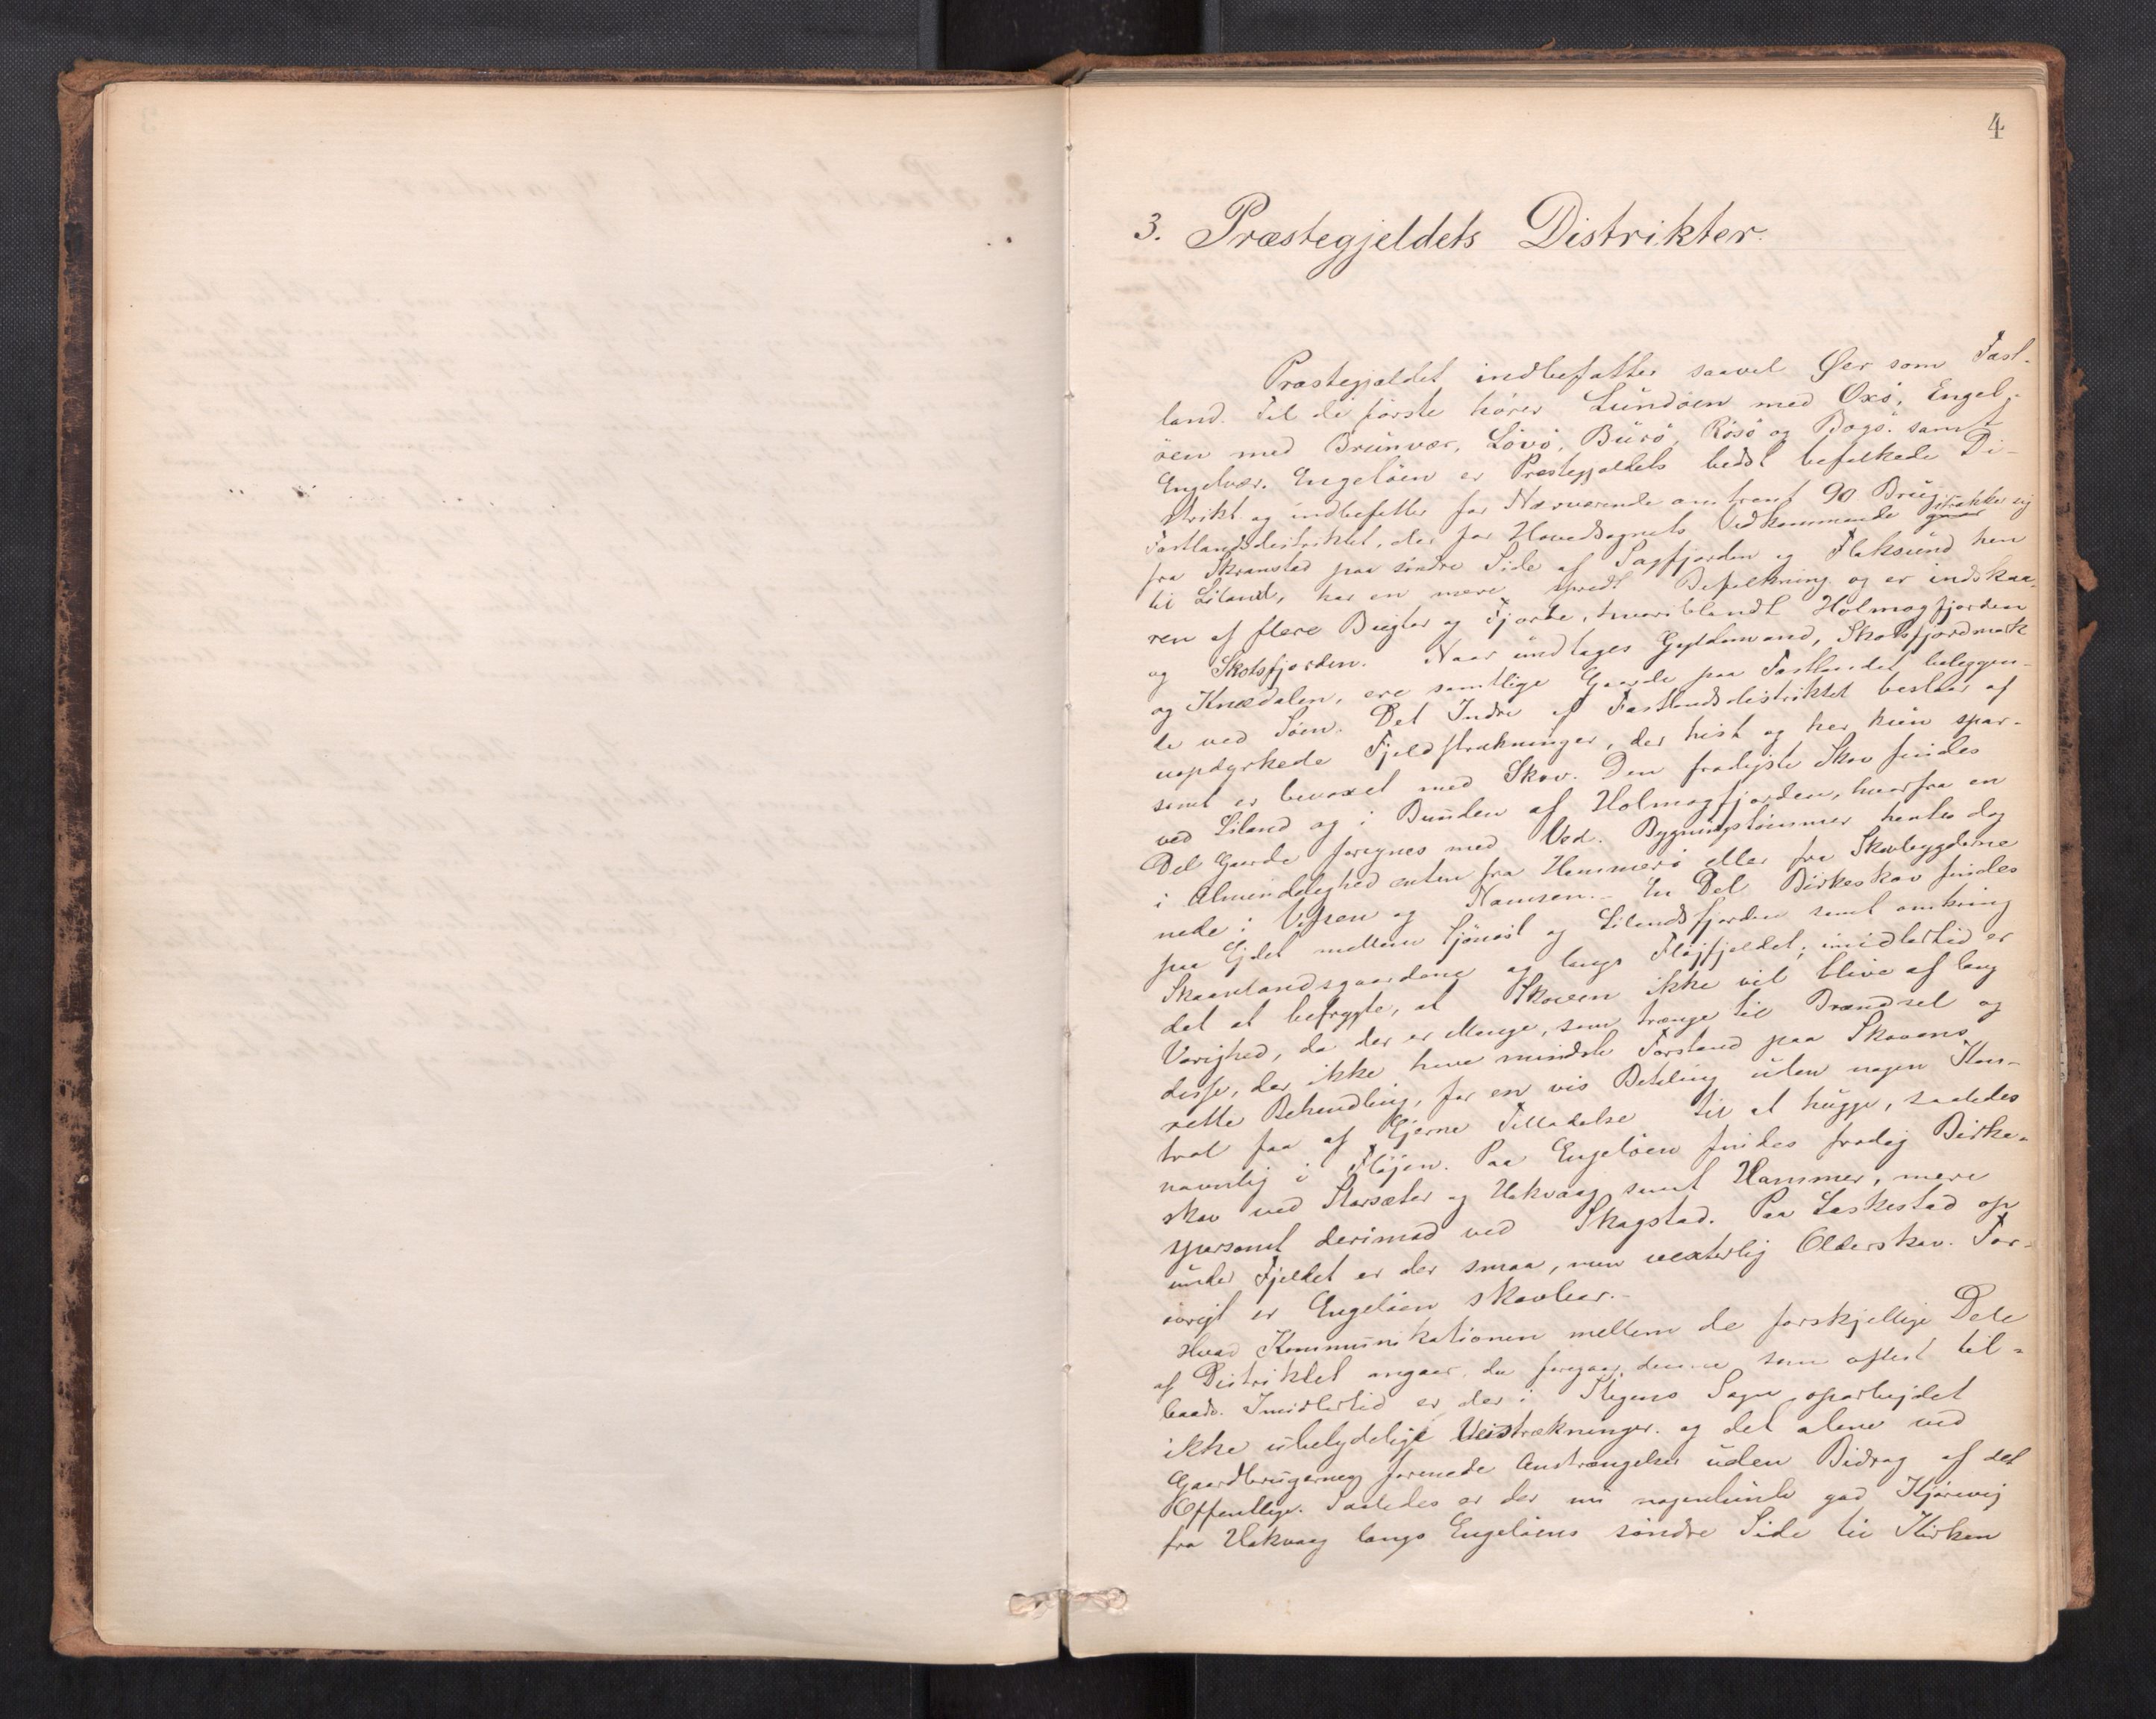 4
3. Præstegjeldets Distrikter.
Præstegjældet indbefatter saavel Øer som Fast-
land. Til de første hører Lundøen med Oxø, Engel-
øen med Brunvær, Løvø, Burø, Røsø og Bogø samt
Engelvær. Engeløen er Præstegjældets bedst befolkede Di-
strikt og indbefatter for Nærværende omtrent 90 Brug.
Fastlandsdistriktet, der for Hovedsognets Vedkommende strækker sig
fra Skranstad paa søndre Side af Sagfjorden og Flaksund hen
til Liland, har en mere spredt Befolkning og er indskaa-
ren af flere Bugter og Fjorde, hvoriblandt Holmagfjorden
og Skotsfjorden. Naar undtages Gyldenvand, Skotsfjordmark
og Knædalen, ere samtlige Gaarde paa Fastlandet beliggen-
de ved Søen. Det Indre af Fastlandsdistriktet bestaar af
uopdyrkede Fjeldstrækninger, der hist og her kun spar-
somt er bevoxet med Skov. Den frodigste Skov findes
ved Liland og i Bunden af Holmagfjorden, hvorfra en
Del Gaarde forsynes med Ved. Bygningstømmer hentes dog
i Almindelighed enten fra Hammerø eller fra Skovbygderne
nede i Vefsen og Namsen. En Del Birkeskov findes
paa Ejdet mellem Sjønøst og Lilandsfjorden samt omkring
Skaanlandsgaardene og langs Fløjfjeldet; imidlertid er
det at befrygte, at Skoven ikke vil blive af lang
Varighed, da der er Mange, som trænge til Brændsel og
disse, der ikke have mindste Forstand paa Skovens
rette Behandling, for en vis Betaling uden nogen Kon-
trol faa af Ejerne Tilladelse til at hugge, saaledes
navnlig i Fløjen. Paa Engeløen findes frodig Birke-
skov ved Storsæter og Hakvaag samt Hammer, mere
sparsomt derimod ved Skagstad. Paa Laskestad op
under Fjeldet er der smaa, men vexterlig Olderskov. For-
øvrigt er Engeløen skovbar.
Hvad Kommunikationen mellem de forskjellige Dele
af Distriktet angaar, da foregaar denne som oftest til-
baads. Imidlertid er der i Stegens Sogn oparbejdet
ikke ubetydelige Veistrækninger og det alene ved
Gaardbrugernes forenede Anstrængelser uden Bidrag af det
Offentlige. Saaledes er der nu nogenlunde god Kjørevej
fra Hakvaag langs Engeløens søndre Side til Kirken